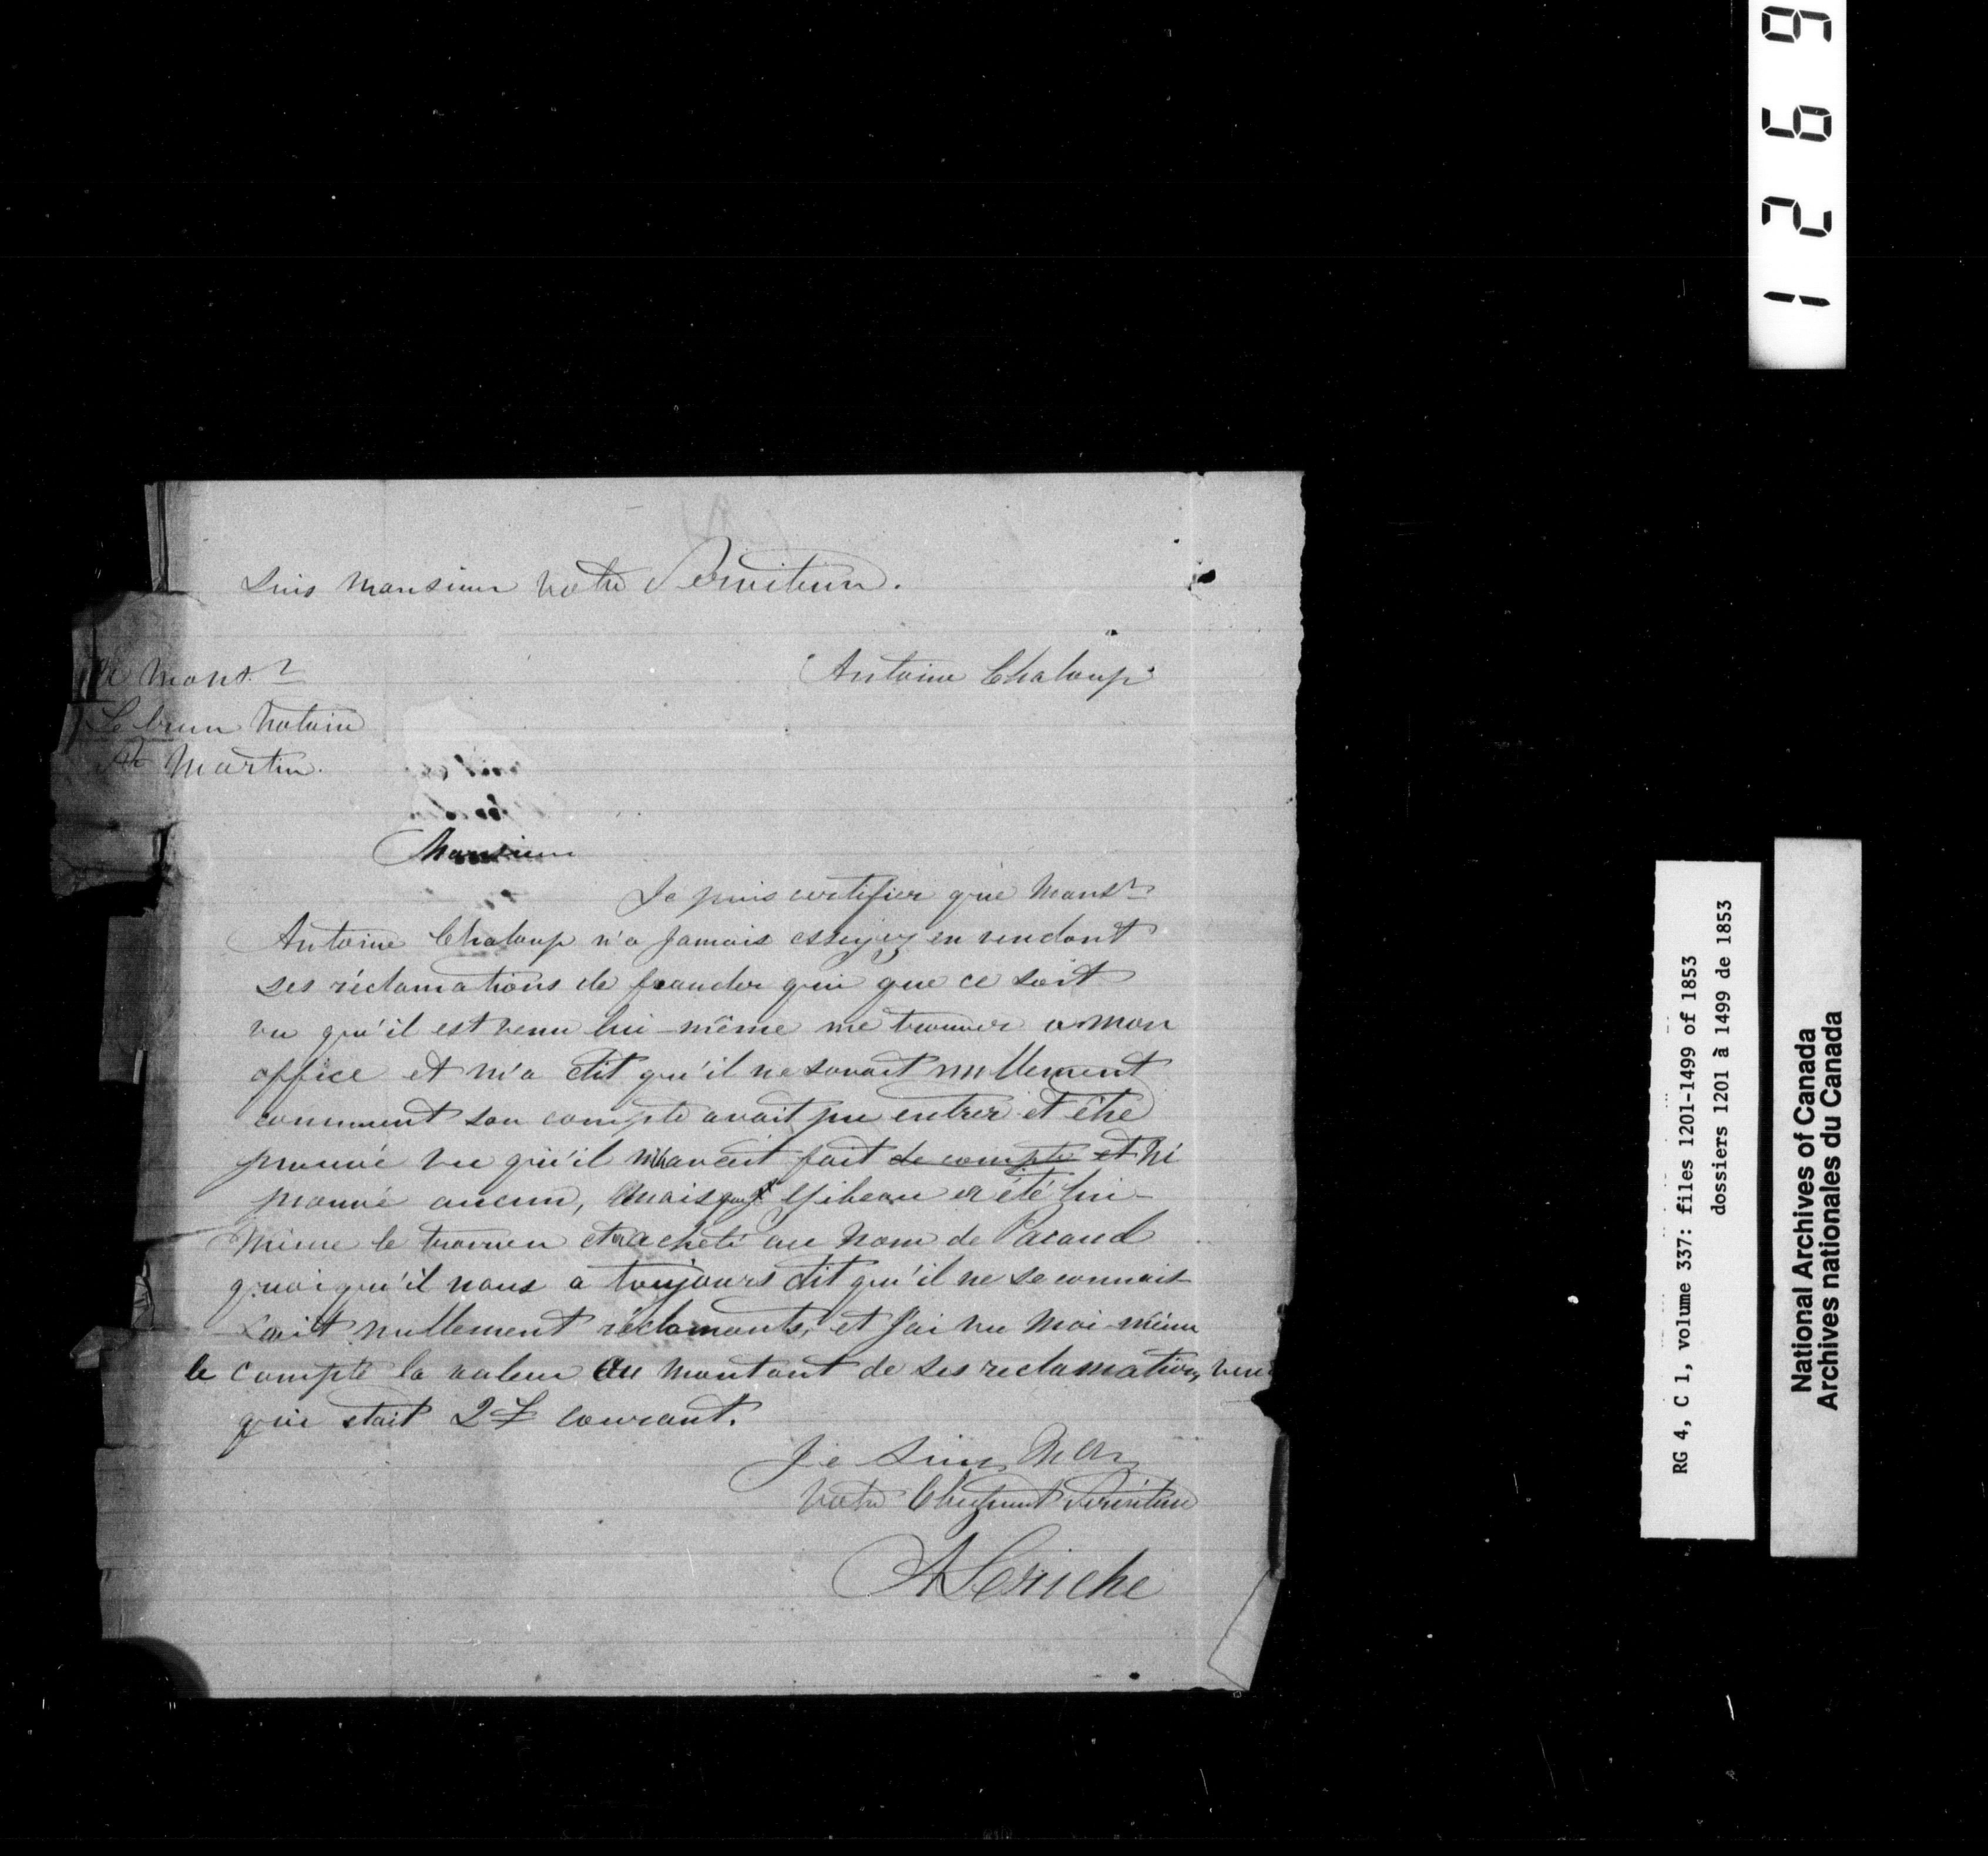 Suis Monsieur votre Serviteur.
Antoine Chaloup
A Monsr
Lebrun Notaire
St Martin.
Monsieur
Je puis certifier que Monsr
Antoine Chaloup n'a jamais essayez en vendant
ses réclamations de frauder qui que ce soit
vu qu'il est venu lui-même me trouver a mon
office et m'a dit qu'il ne savait nullement
comment son compte avait pu entrer et être
prouvé vu qu'il n'avait fait de compte et ni
prouvé aucun, mais que Lespérance a été lui-
même le trouver et a acheté au nom de Pacaud
quoiqu'il nous a toujours dit qu'il ne se connais-
sait nullement réclamants, et j'ai vu moi-même
le compte la valeur au montant de ses reclamation,
qui était 2£ courant.
Je suis
votre Obeissant Serviteur
A Seriche
1269
RG 4, C 1, volume 337: files 1201-1499 of 1853
dossiers 1201 à 1499 de 1853
National Archives of Canada
Archives nationales du Canada